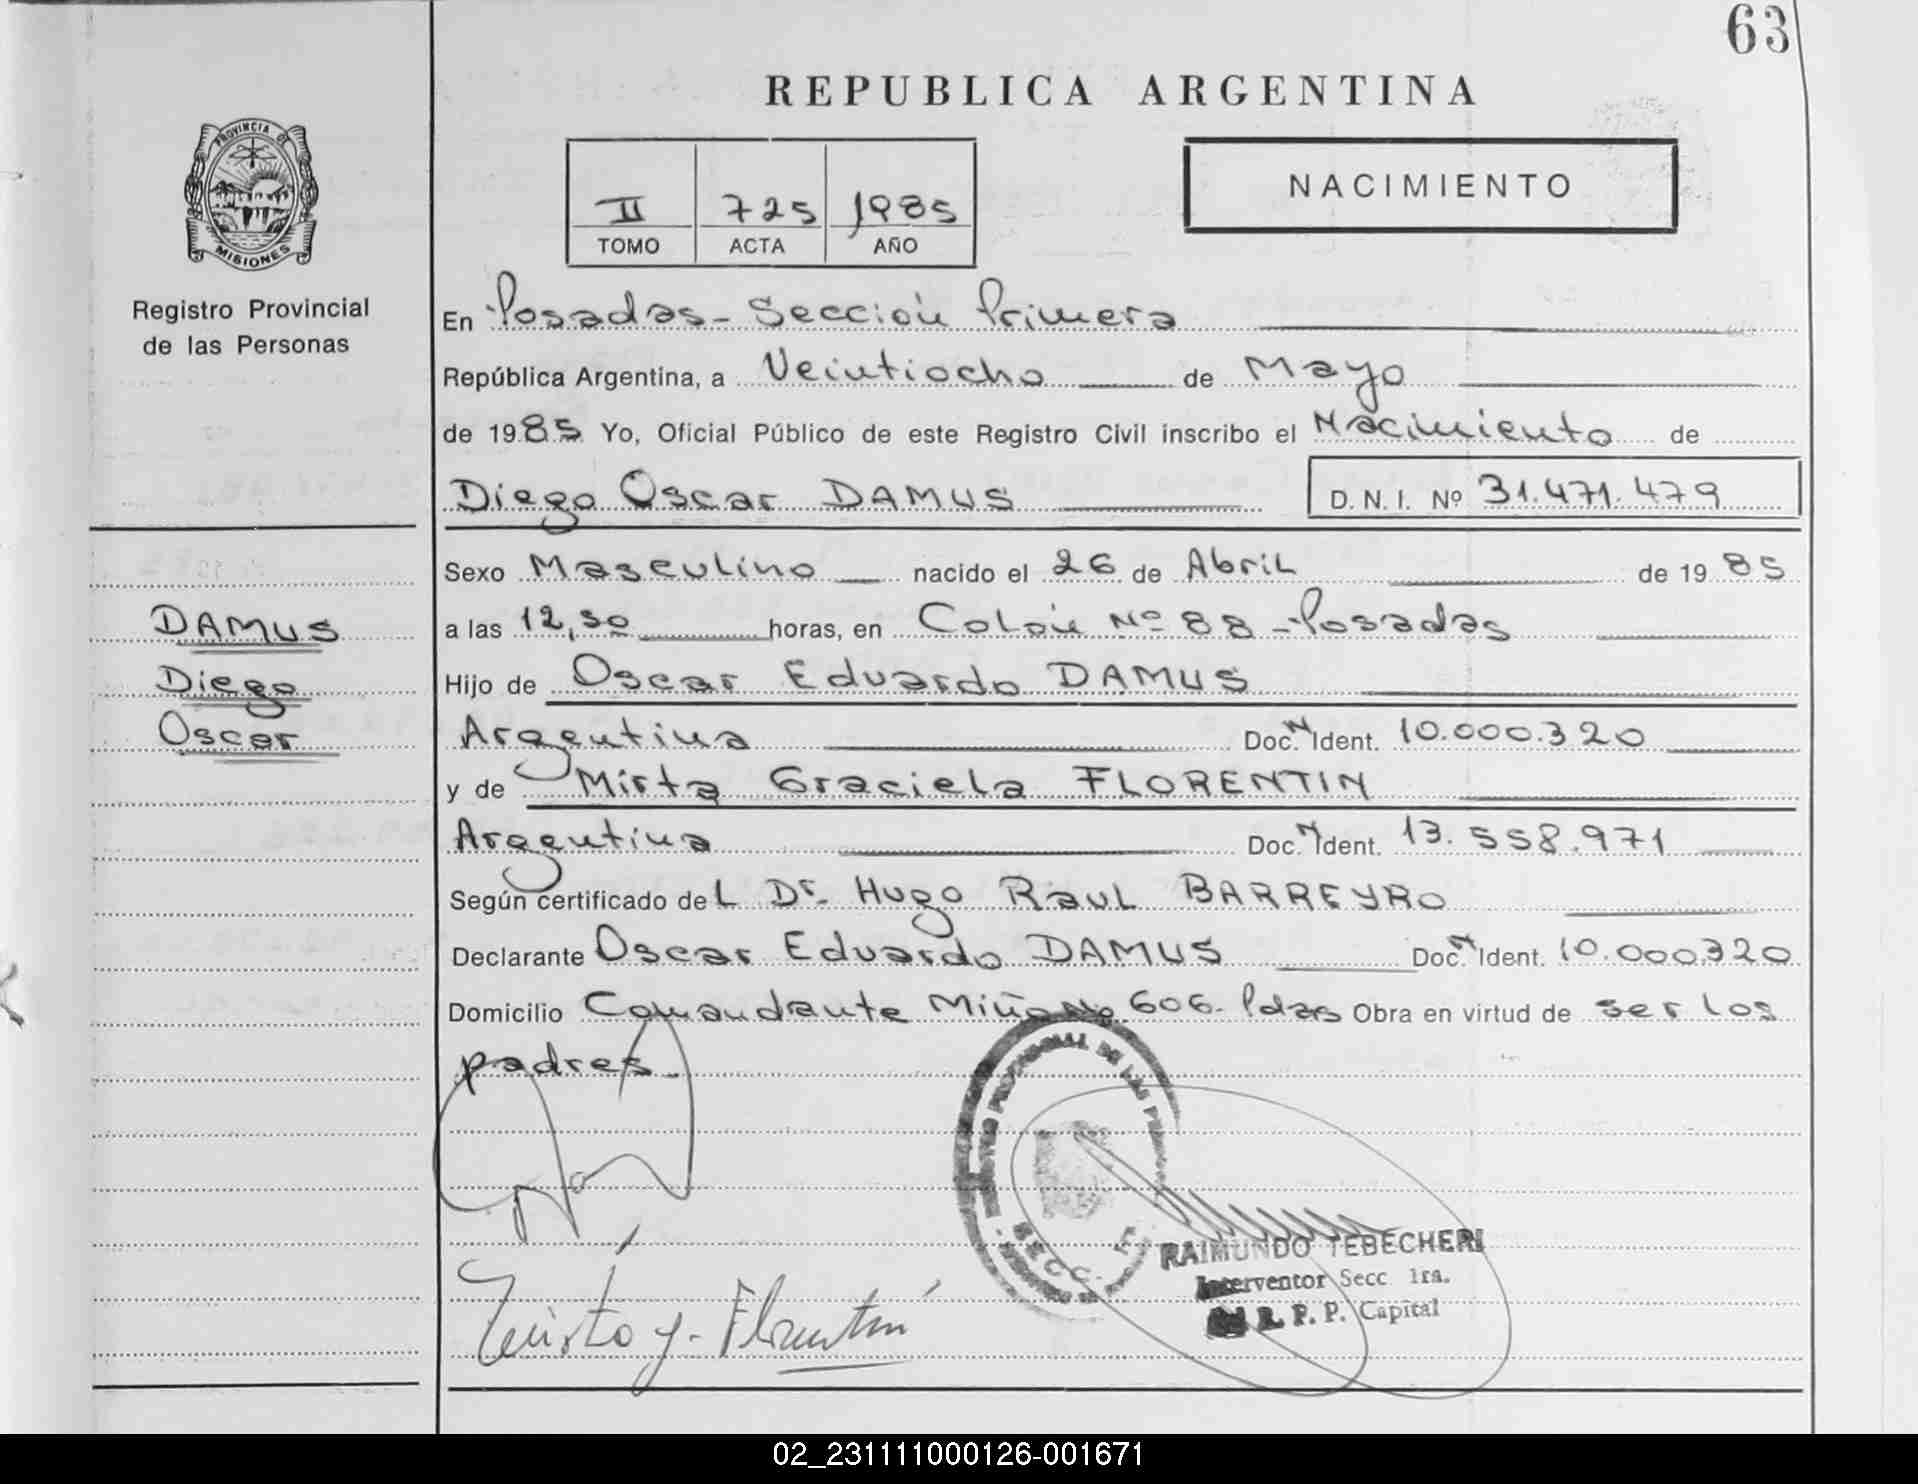 63
REPUBLICA ARGENTINA
PROVINCIA DE
MISIONES
Registro Provincial
de las Personas
II 725 1985
TOMO ACTA AÑO
NACIMIENTO
En Posadas - Sección Primera
República Argentina, a Veintiocho de Mayo
de 1985 Yo, Oficial Público de este Registro Civil inscribo el Nacimiento de
Diego Oscar DAMUS D.N.I. Nº 31.471.479
Sexo Masculino nacido el 26 de Abril de 1985
a las 12,30 horas, en Colón Nº 88 - Posadas
Hijo de Oscar Eduardo DAMUS
Argentina Doc. N Ident. 10.000.320
y de Mirta Graciela FLORENTIN
Argentina Doc. N Ident. 13.558.971
Según certificado del Dr. Hugo Raul BARREYRO
Declarante Oscar Eduardo DAMUS Doc. N Ident. 10.000.320
Domicilio Comandante Miño Nº 606. Pdas Obra en virtud de ser los
padres.
DAMUS
Diego
Oscar
REGISTRO PROVINCIAL DE LAS
SECC.
RAIMUNDO TEBECHERI
Interventor Secc 1ra.
R. P. P. Capital
Mirta g. Florentín
02_231111000126-001671